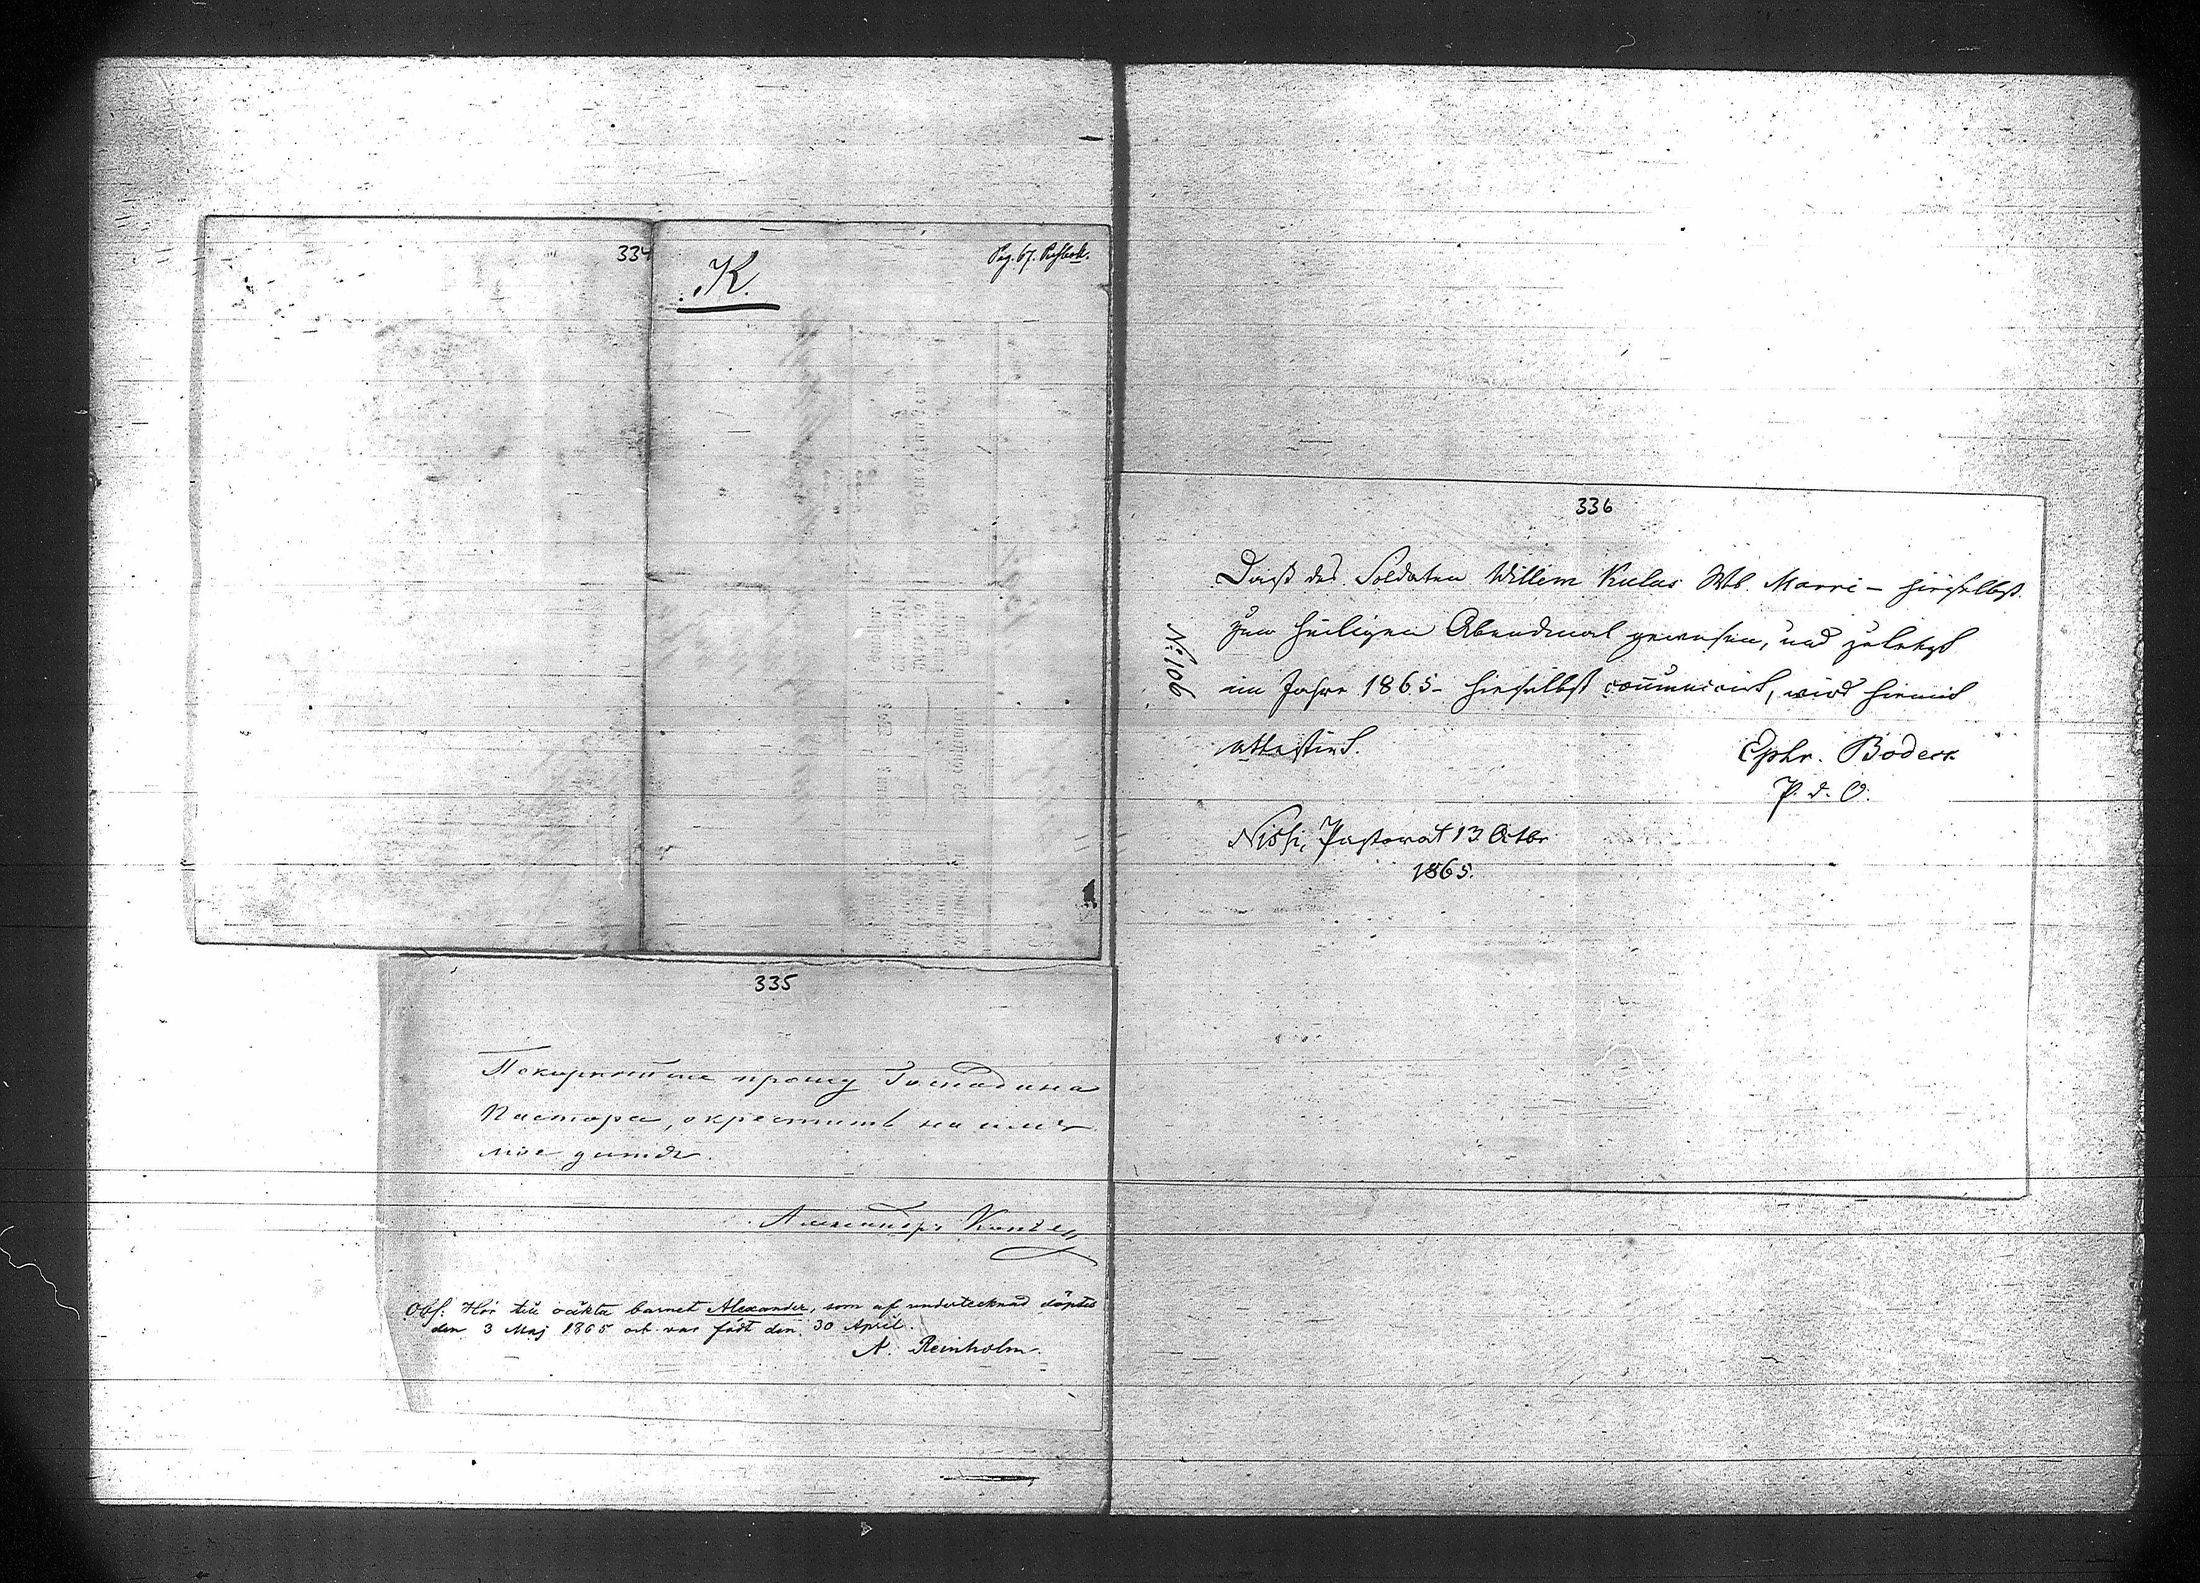 334
K.
Pag. 67.
335
Покорнѣйше прошу Господина
Пастора, окрестить на имя
мое дитя.
Александръ
Obs: Hör till oäkta barnet Alexander, som af undertecknad döptes
den 3 Maj 1865 och var född den 30 April.
A. Reinholm.
336
No: 106
Daß des Soldaten Willem Kulas Wb. Marri – hieselbst
zum heiligen Abendmal gewesen, und zuletzt
im Jahre 1865 – hieselbst communicirt, wird hiemit
attestirt.
Ephr. Bodeck
P. d. O.
Nissi, Pastorat 13 Octbr
1865.